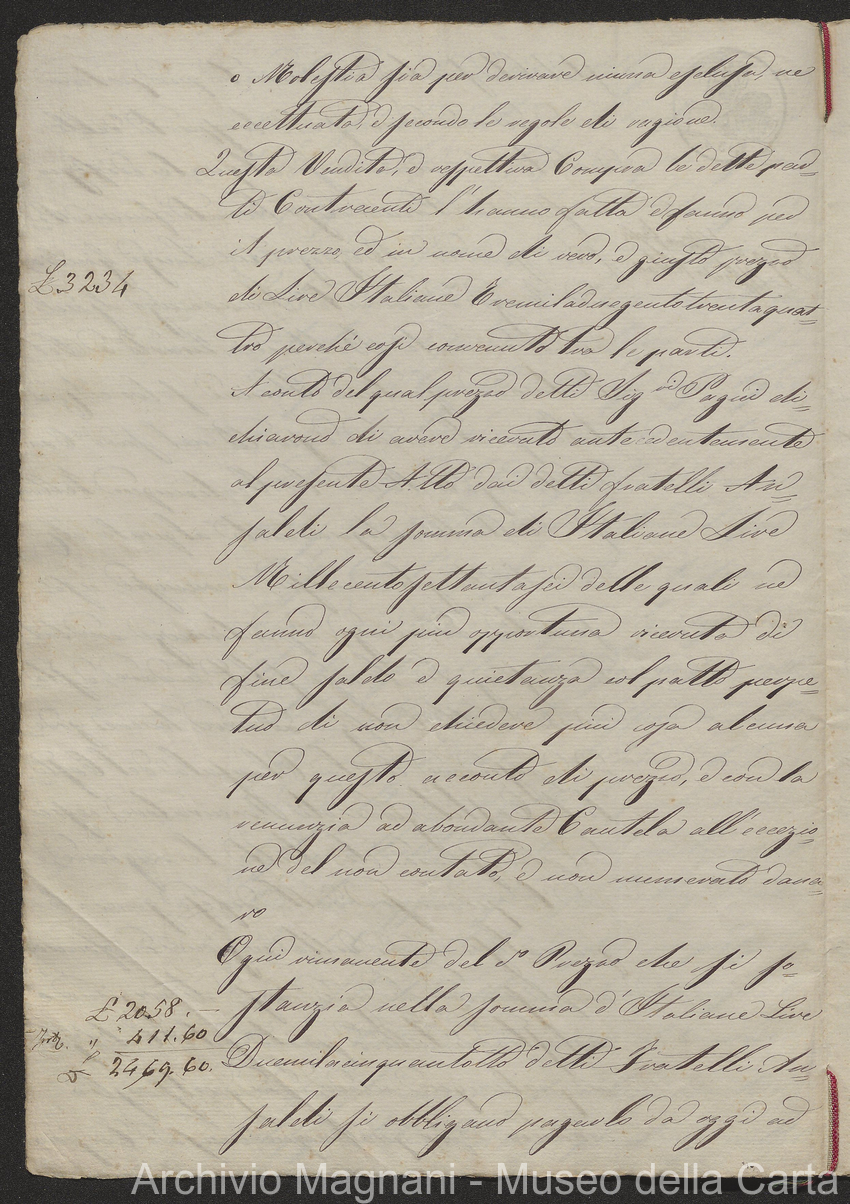 o Molestia sia per derivare niuna esclusa, ne
eccettuata, e secondo le regole di ragione.
Questa Vendita, e respettiva Compra le dette par=
ti Contraenti l'hanno fatta e fanno per
il prezzo, ed in nome di vero, e giusto prezzo
£ 3234
di Lire Italiane Tremiladugentotrentaquat=
tro perché così convenuto tra le parti.
A conto del qual prezzo detti Sig.ri Pagni di=
chiarono di avere ricevuto antecedentemente
al presente Atto dai detti fratelli An=
saldi la somma di Italiane Lire
Millecentosettantasei delle quali ne
fanno ogni più opportuna ricevuta di
fine saldo e quietanza col patto perpe=
tuo di non chiedere più cosa alcuna
per questo acconto di prezzo, e con la
renunzia ad abondante Cautela all'eccezio=
ne del non contato, e non numerato dana=
ro
Ogni rimanente del d.o Prezzo che si so=
stanzia nella somma d'Italiane Lire
£ 2058. —
Duemilacinquantotto detti Fratelli An=
" 411.60
2469.60.
saldi si obbligano pagarlo da oggi ad
Archivio Magnani - Museo della Carta